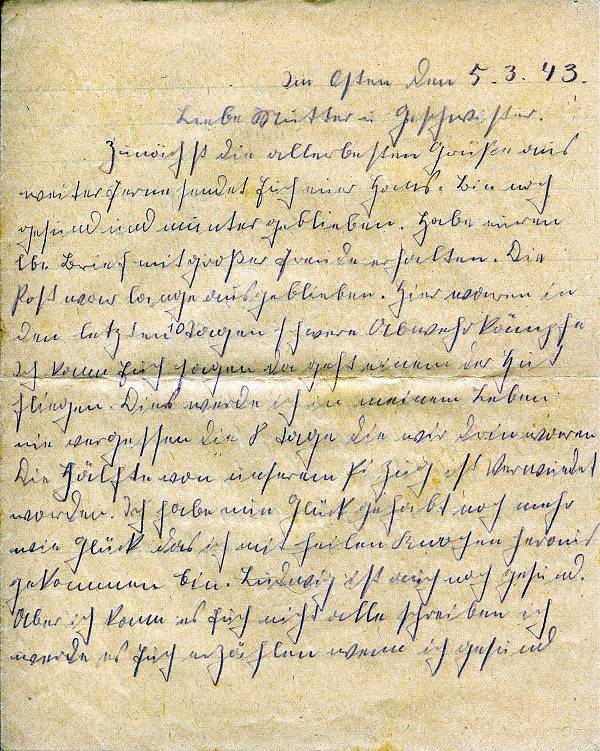 Im Osten den 5.3.43.
Liebe Mutter u Geschwister.
Zunächst die allerbesten Grüße aus
weiter Ferne sendet Euch euer Hans. Bin noch
gesund und munter geblieben. Habe euren
lb. Brief mit großer Freude erhalten. Die
Post war lange ausgeblieben. Hier waren in
den letzten 10 Tagen schwere Abwehrkämpfe
Ich kann Euch sagen da geht einem der Hut
fliegen. Dies werde ich in meinem Leben
nie vergessen die 8 Tage die wir drin waren
Die Hälfte von unserem Zug ist Verwundet
worden. Ich habe nun Glück gehabt noch mehr
wie Glück das ich mit heilen Knochen heraus
gekommen bin. Ludwig ist auch noch gesund.
Aber ich kann es Euch nicht alle schreiben ich
werde es Euch erzählen wenn ich gesund